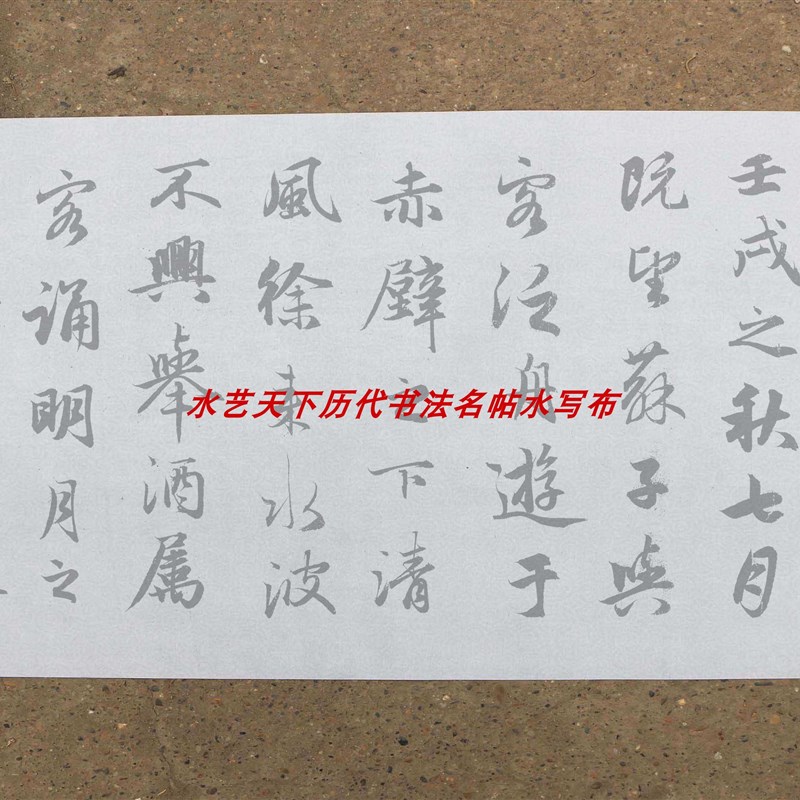 壬戌之秋七月
既望蘇子與
客泛舟遊于
赤壁之下清
風徐来水波
不興舉酒属
客诵明月之
水艺天下历代书法名帖水写布